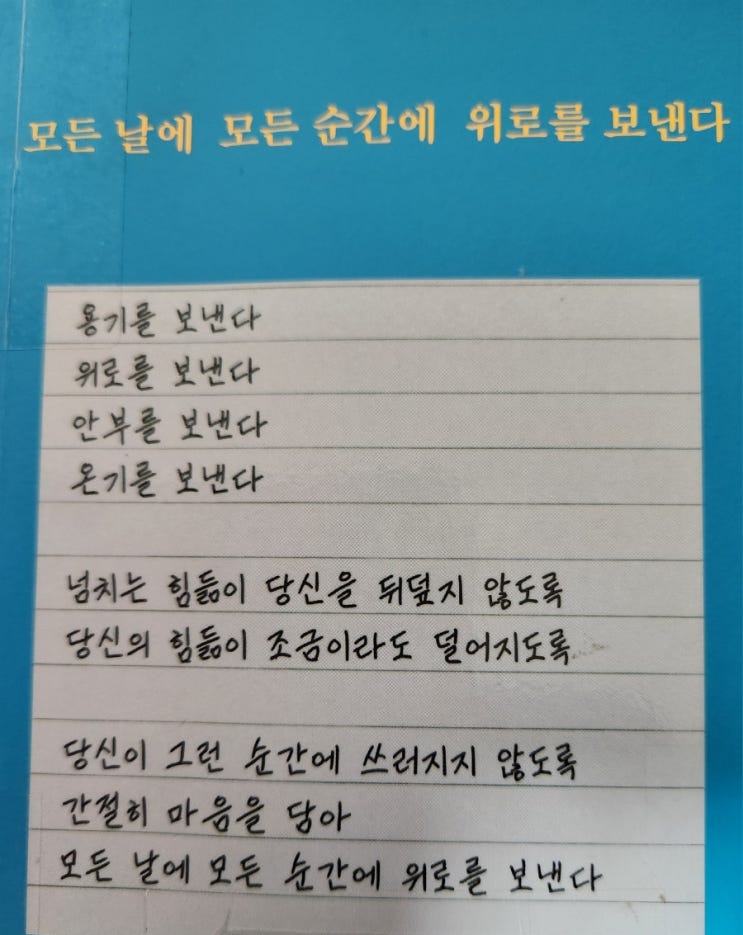 모든 날에 모든 순간에 위로를 보낸다
용기를 보낸다
위로를 보낸다
안부를 보낸다
온기를 보낸다
넘치는 힘듦이 당신을 뒤덮지 않도록
당신의 힘듦이 조금이라도 덜어지도록
당신이 그런 순간에 쓰러지지 않도록
간절히 마음을 담아
모든 날에 모든 순간에 위로를 보낸다